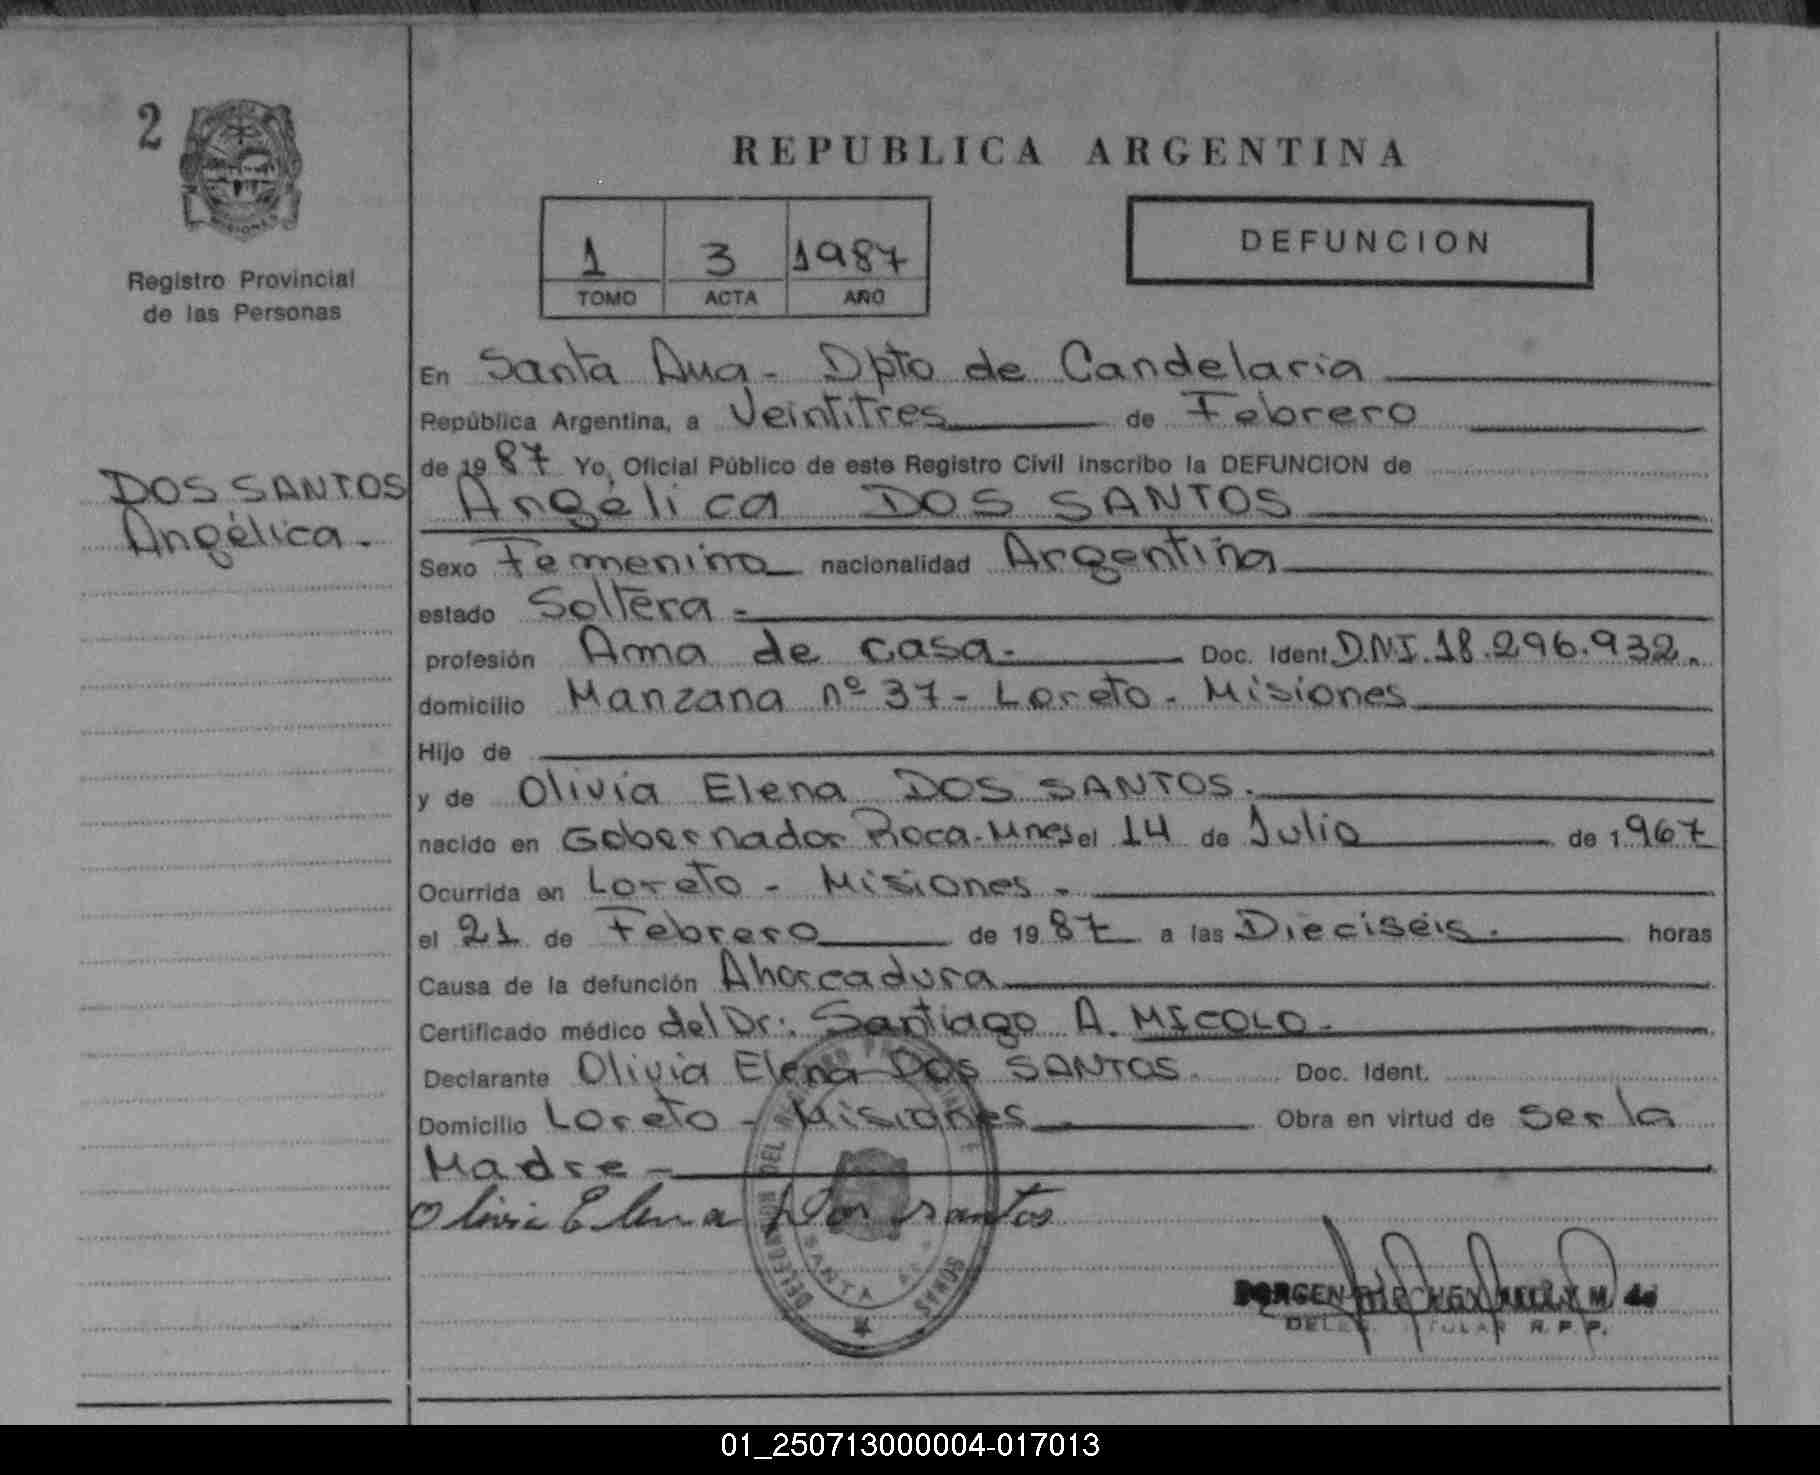 2
Registro Provincial
de las Personas
DOS SANTOS
Angélica.
REPUBLICA ARGENTINA
1 3 1987
TOMO ACTA AÑO
DEFUNCION
En Santa Ana - Dpto de Candelaria
República Argentina, a Veintitres de Febrero
de 1987 Yo, Oficial Público de este Registro Civil inscribo la DEFUNCION de
Angélica DOS SANTOS
Sexo Femenino nacionalidad Argentina
estado Soltera -
profesión Ama de casa - Doc. Ident. D.N.I. 18.296.932.
domicilio Manzana nº 37 - Loreto - Misiones
Hijo de
y de Olivia Elena DOS SANTOS.
nacido en Gobernador Roca - Mnes el 14 de Julio de 1967
Ocurrida en Loreto - Misiones -
el 21 de Febrero de 1987 a las Dieciséis. horas
Causa de la defunción Ahorcadura
Certificado médico del Dr: Santiago A. MICOLO -
Declarante Olivia Elena DOS SANTOS. Doc. Ident.
Domicilio Loreto - Misiones Obra en virtud de ser la
Madre -
Olivia Elena Dos santos
SANTA
R. P. P.
01_250713000004-017013